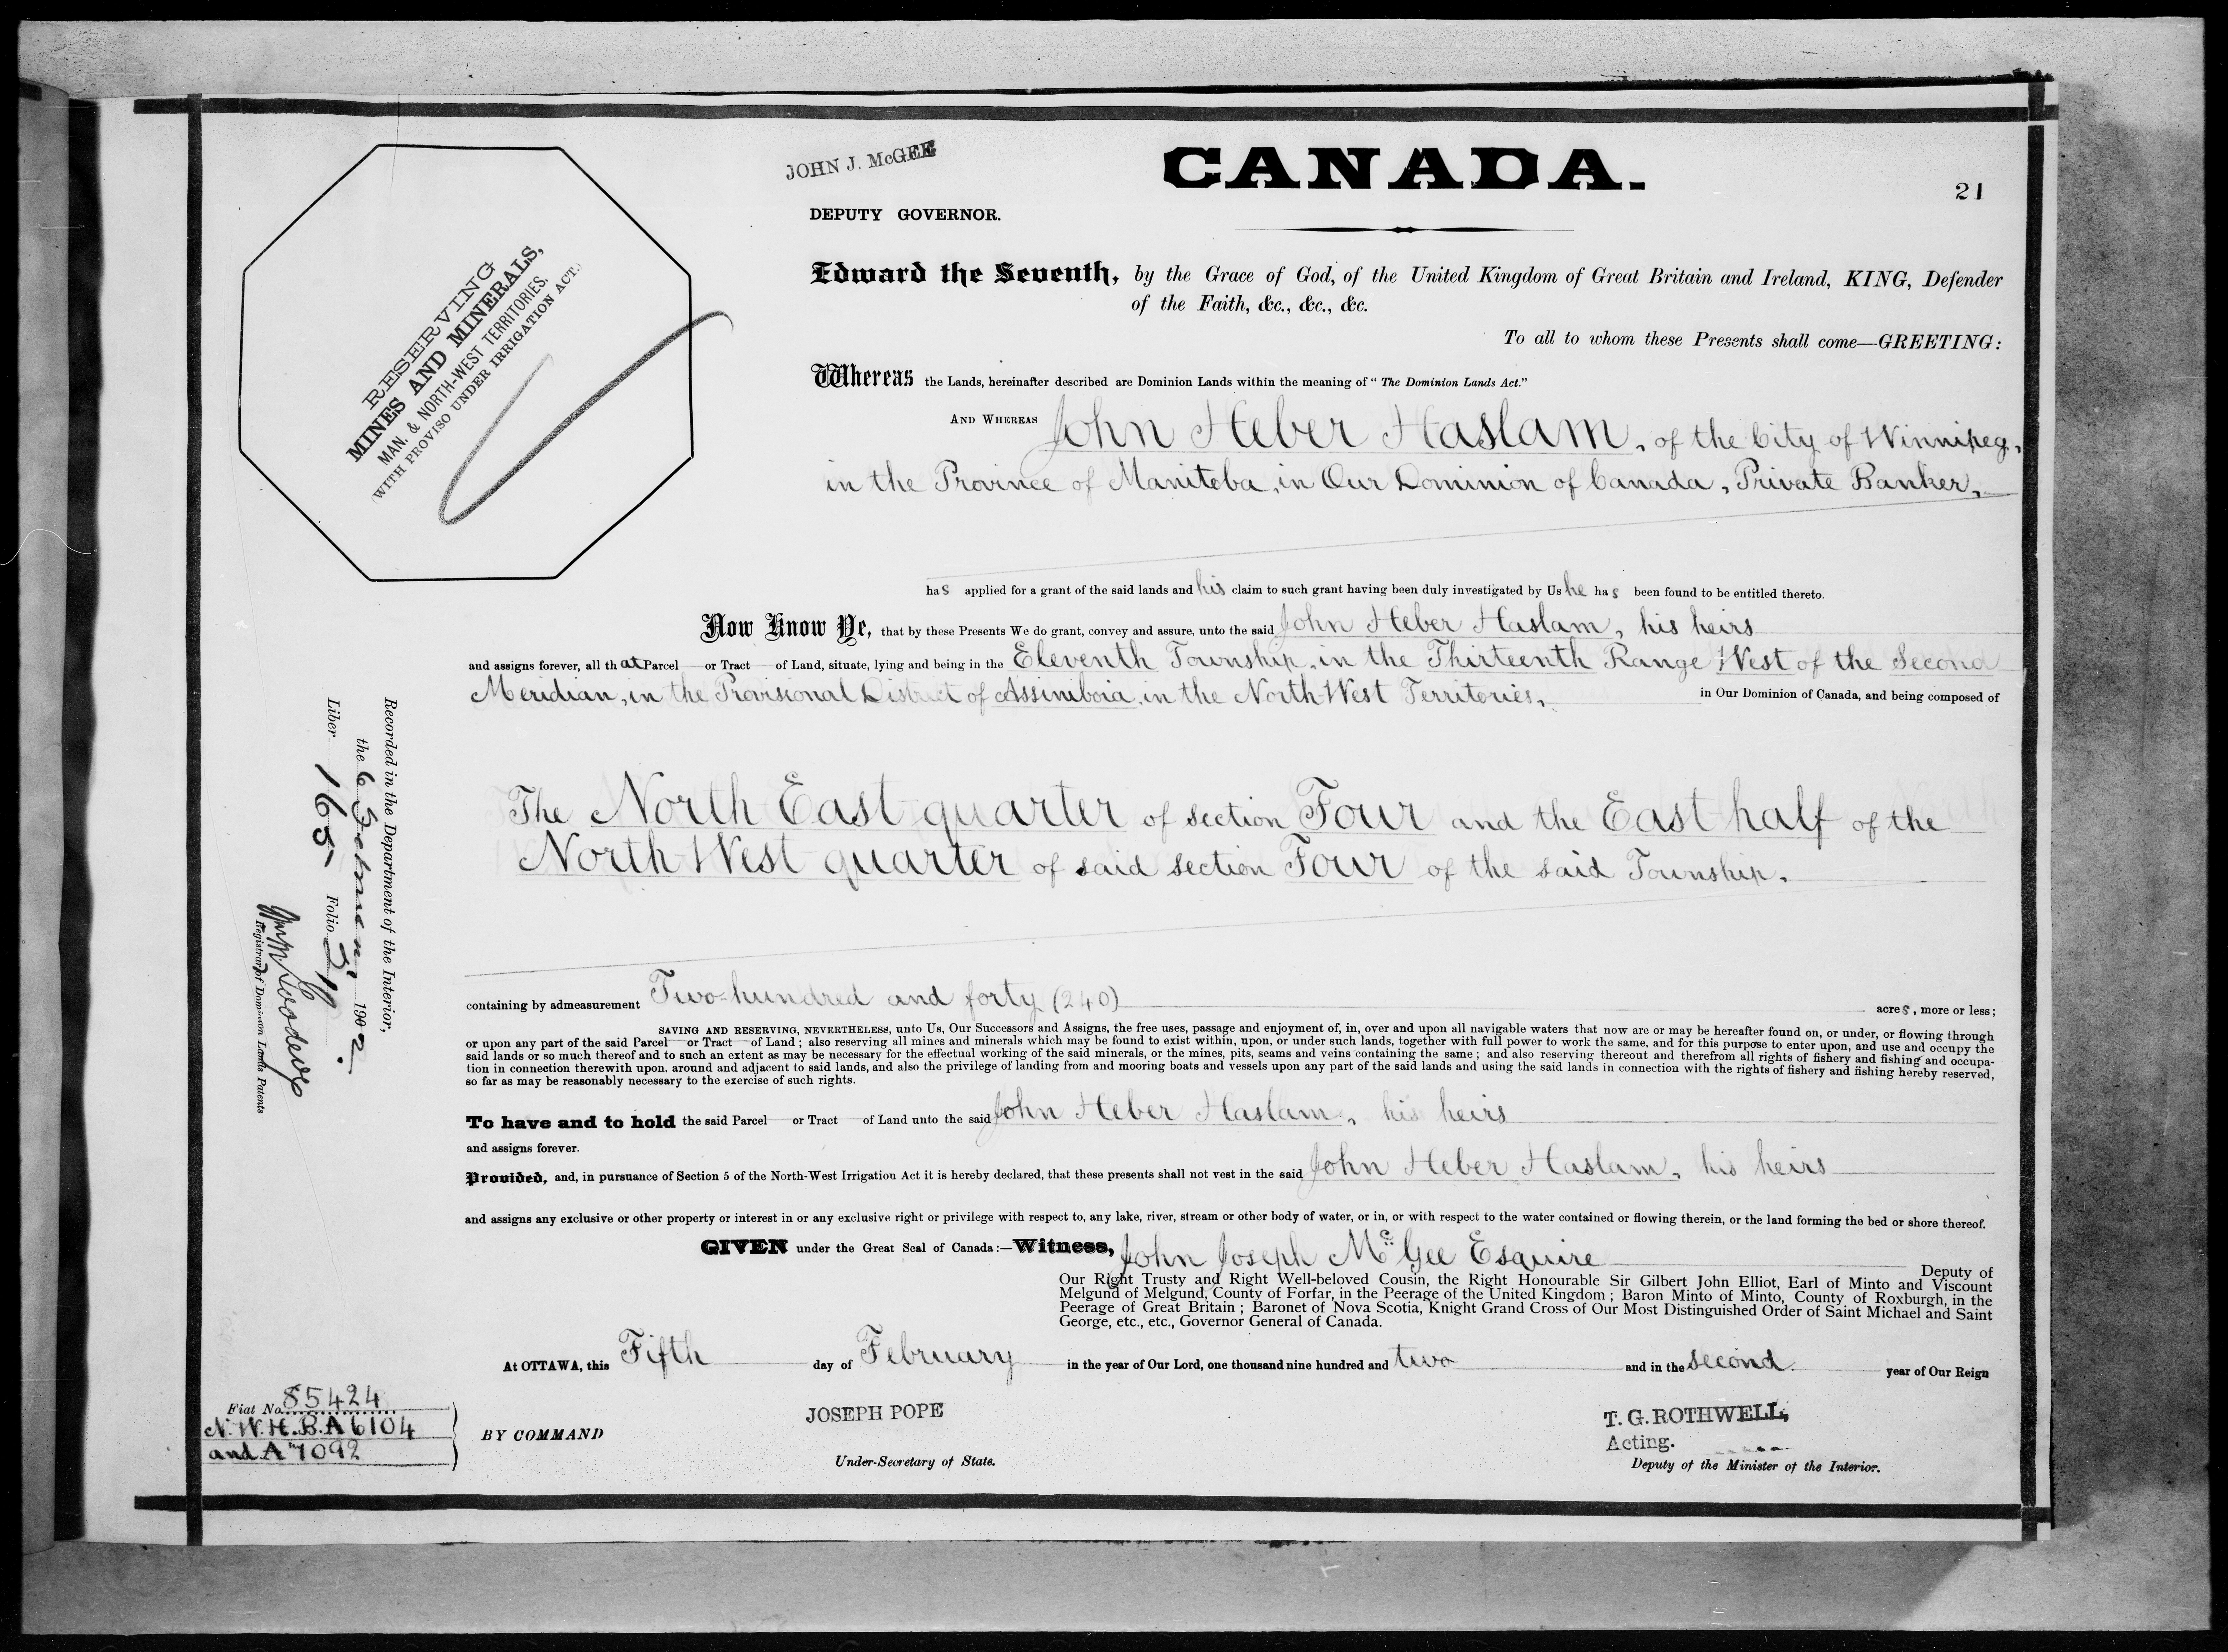 JOHN J. McGEE
CANADA.
21
DEPUTY GOVERNOR.
RESERVING
MINES AND MINERALS,
MAN. & NORTH-WEST TERRITORIES.
(WITH PROVISO UNDER IRRIGATION ACT.)
Edward the Seventh, by the Grace of God, of the United Kingdom of Great Britain and Ireland, KING, Defender
of the Faith, &c., &c., &c.
To all to whom these Presents shall come—GREETING:
Whereas the Lands, hereinafter described are Dominion Lands within the meaning of "The Dominion Lands Act."
AND WHEREAS John Heber Haslam, of the City of Winnipeg,
in the Province of Manitoba, in Our Dominion of Canada, Private Banker,
has applied for a grant of the said lands and his claim to such grant having been duly investigated by Us he has been found to be entitled thereto.
Now Know Ye, that by these Presents We do grant, convey and assure, unto the said John Heber Haslam, his heirs
and assigns forever, all that Parcel or Tract of Land, situate, lying and being in the Eleventh Township, in the Thirteenth Range West of the Second
Meridian, in the Provisional District of Assiniboia, in the North-West Territories, in Our Dominion of Canada, and being composed of
The North East quarter of section Four and the East half of the
North West quarter of said section Four of the said Township.
containing by admeasurement Two-hundred and forty (240) acres, more or less;
SAVING AND RESERVING, NEVERTHELESS, unto Us, Our Successors and Assigns, the free uses, passage and enjoyment of, in, over and upon all navigable waters that now are or may be hereafter found on, or under, or flowing through
or upon any part of the said Parcel or Tract of Land; also reserving all mines and minerals which may be found to exist within, upon, or under such lands, together with full power to work the same, and for this purpose to enter upon, and use and occupy the
said lands or so much thereof and to such an extent as may be necessary for the effectual working of the said minerals, or the mines, pits, seams and veins containing the same; and also reserving thereout and therefrom all rights of fishery and fishing and occupa-
tion in connection therewith upon, around and adjacent to said lands, and also the privilege of landing from and mooring boats and vessels upon any part of the said lands and using the said lands in connection with the rights of fishery and fishing hereby reserved,
so far as may be reasonably necessary to the exercise of such rights.
To have and to hold the said Parcel or Tract of Land unto the said John Heber Haslam, his heirs
and assigns forever.
Provided, and, in pursuance of Section 5 of the North-West Irrigation Act it is hereby declared, that these presents shall not vest in the said John Heber Haslam, his heirs
and assigns any exclusive or other property or interest in or any exclusive right or privilege with respect to, any lake, river, stream or other body of water, or in, or with respect to the water contained or flowing therein, or the land forming the bed or shore thereof.
GIVEN under the Great Seal of Canada:—Witness, John Joseph McGee Esquire Deputy of
Our Right Trusty and Right Well-beloved Cousin, the Right Honourable Sir Gilbert John Elliot, Earl of Minto and Viscount
Melgund of Melgund, County of Forfar, in the Peerage of the United Kingdom; Baron Minto of Minto, County of Roxburgh, in the
Peerage of Great Britain; Baronet of Nova Scotia, Knight Grand Cross of Our Most Distinguished Order of Saint Michael and Saint
George, etc., etc., Governor General of Canada.
At OTTAWA, this Fifth day of February in the year of Our Lord, one thousand nine hundred and two and in the second year of Our Reign
Fiat No. 85424
N.W.H.B.A 6104
and A 7092
BY COMMAND
JOSEPH POPE
Under-Secretary of State.
T. G. ROTHWELL,
Acting.
Deputy of the Minister of the Interior.
Recorded in the Department of the Interior,
the 6 1902.
Liber 165 Folio
Registrar of Dominion Lands Patents